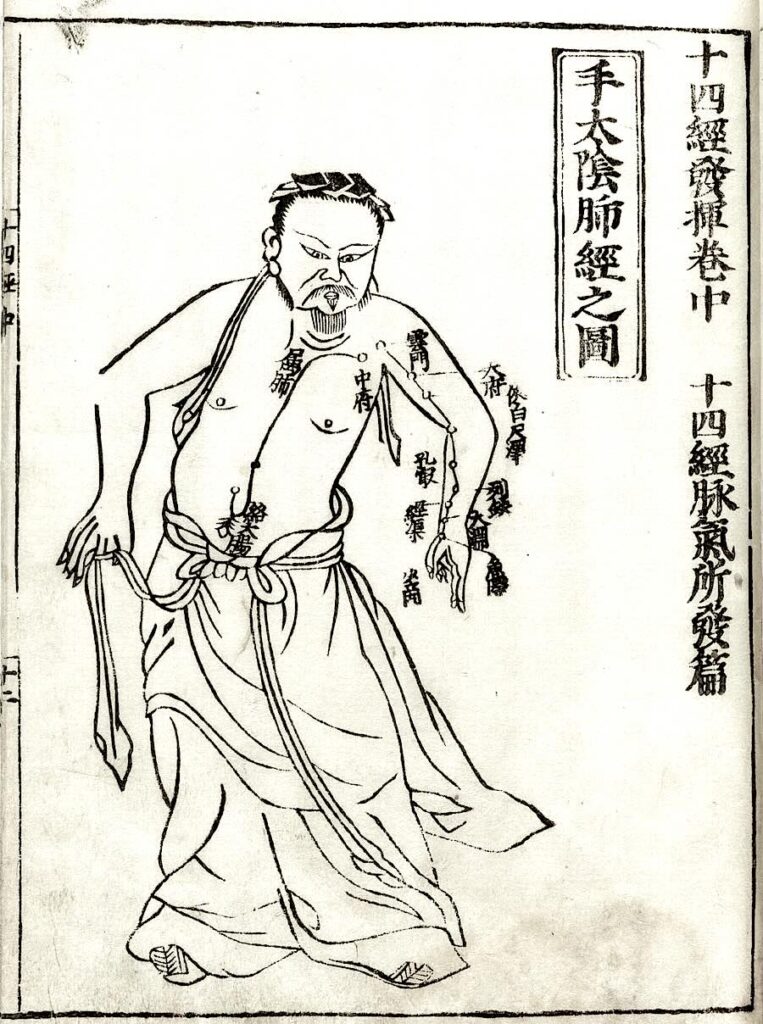 十四經發揮卷中 十四經脉氣所發篇
手太陰肺經之圖
雲門
中府
屬肺
俠白
尺澤
孔最
列缺
經渠
大淵
魚際
少商
絡大腸
十四經中
十二